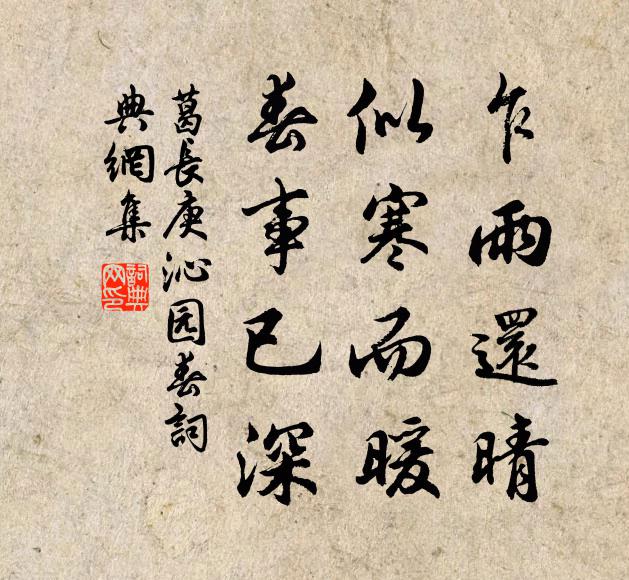 乍雨還晴
似寒而暖
春事已深
葛長庚沁园春詞
典網集
詞典網印